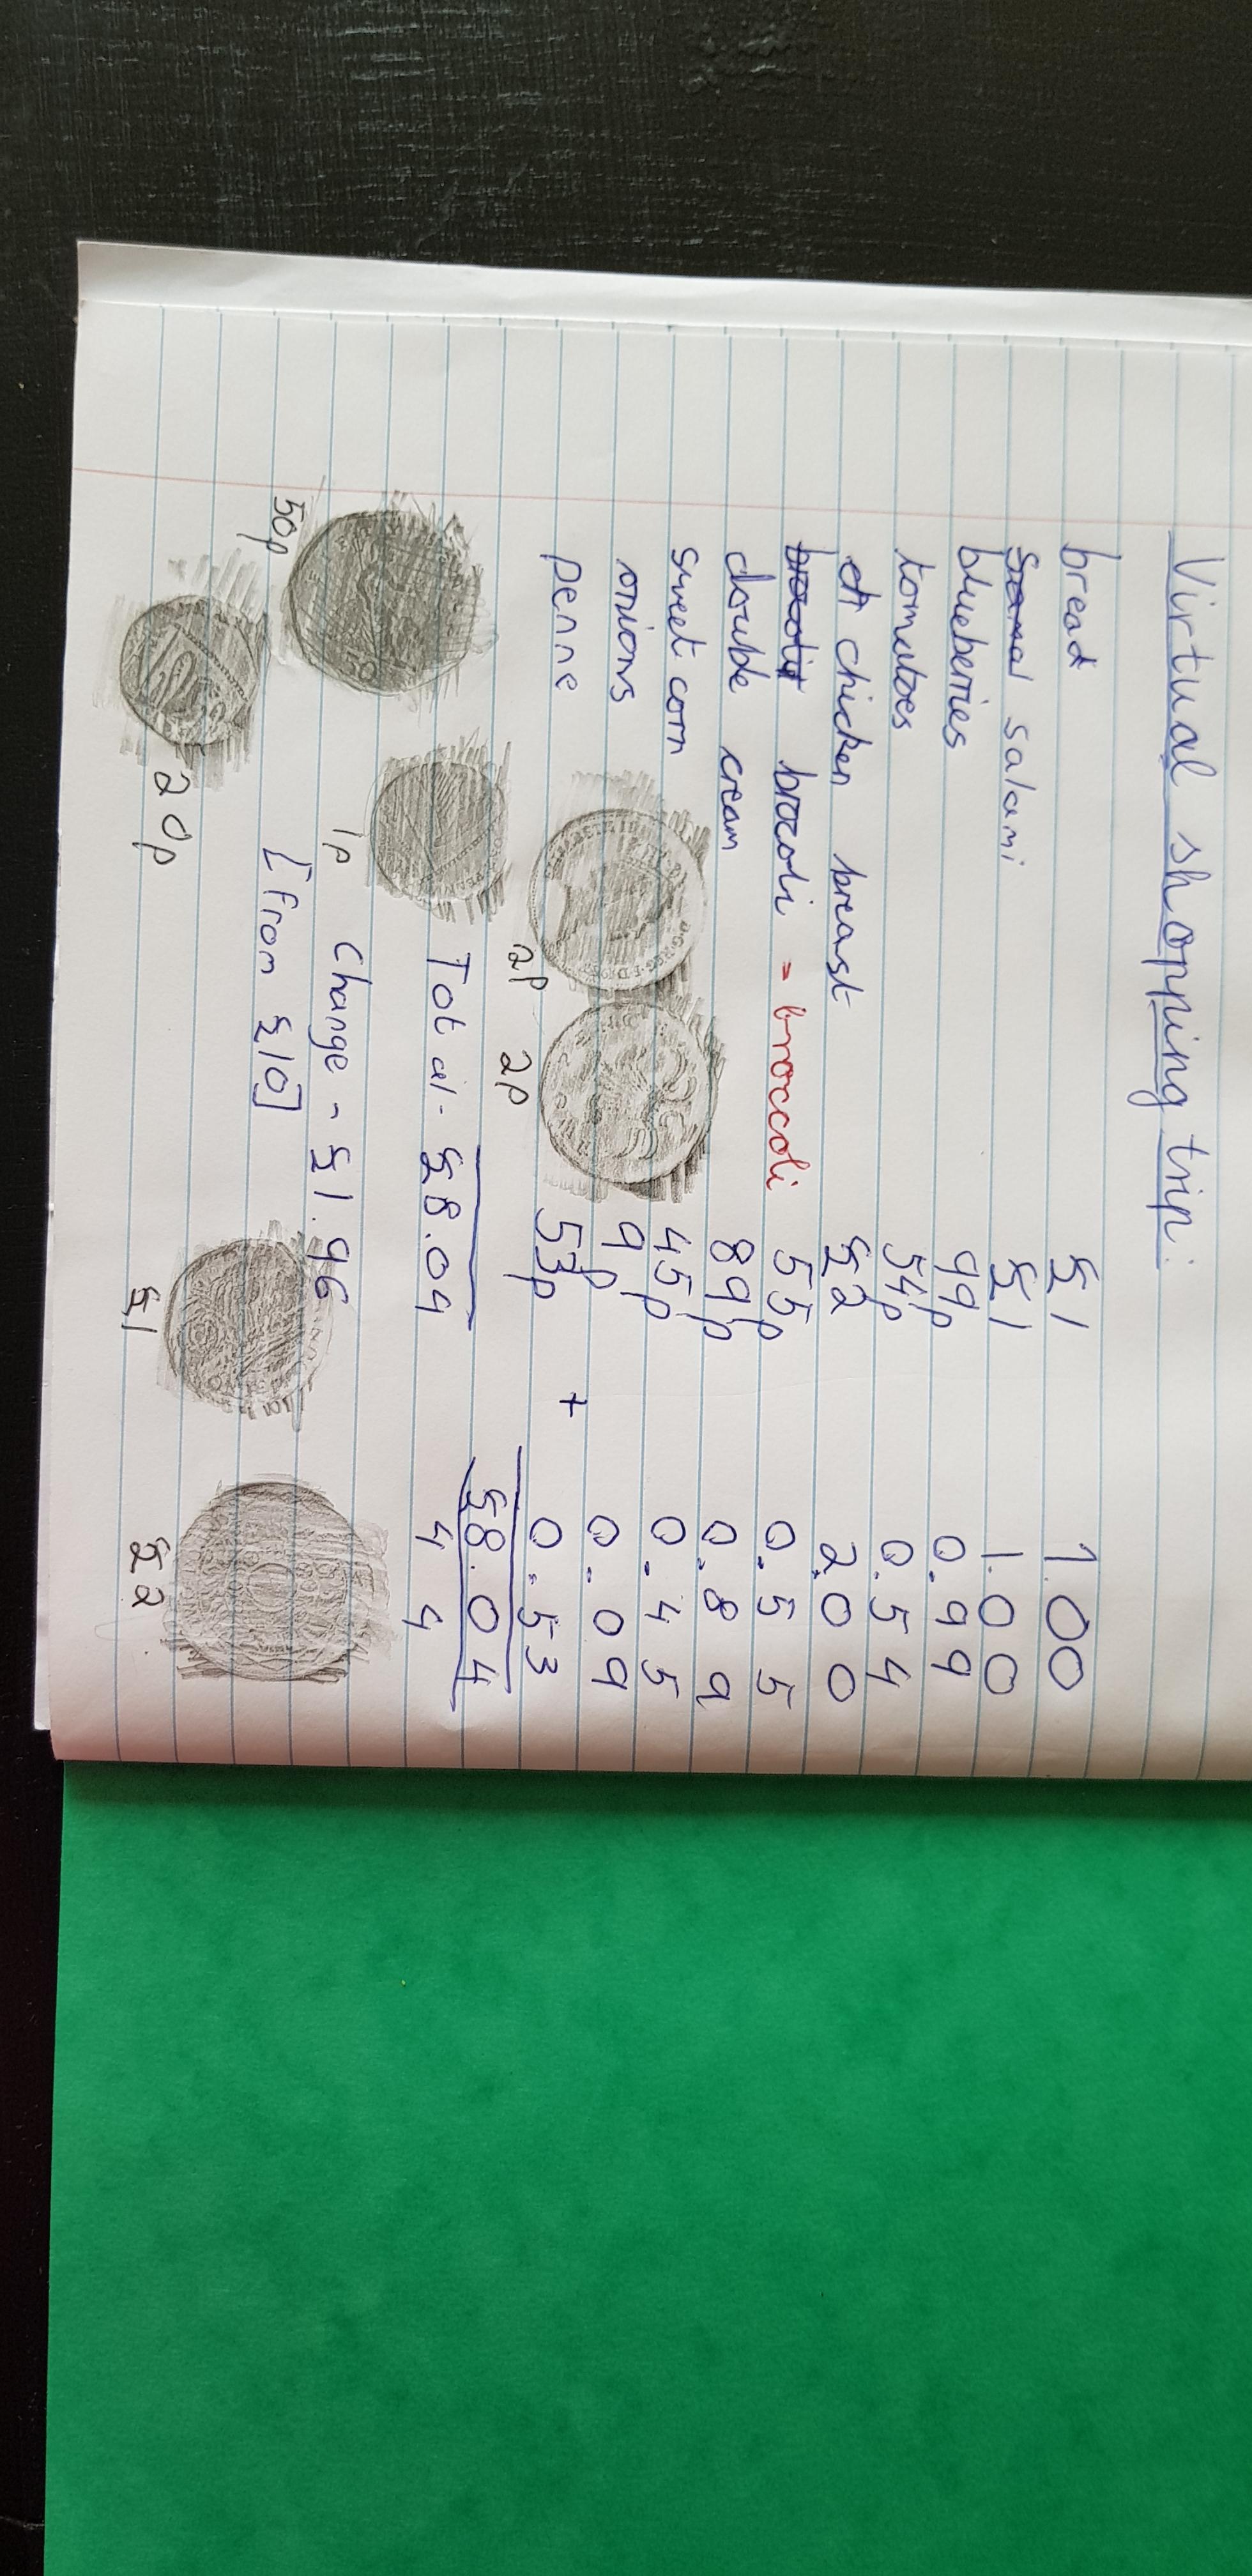 Virtual shopping trip.
bread £1 1.00
salami £1 1.00
blueberries 99p 0.99
tomatoes 54p 0.54
ch chicken breast £2 2.00
brocoli = broccoli 55p 0.55
double cream 89p 0.89
sweet corn 45p 0.45
onions 9p 0.09
penne 53p + 0.53
2p 2p
£8.04
Total - £8.04 4 4
50p 1p change - £1.96
[from £10]
20p £1 £2